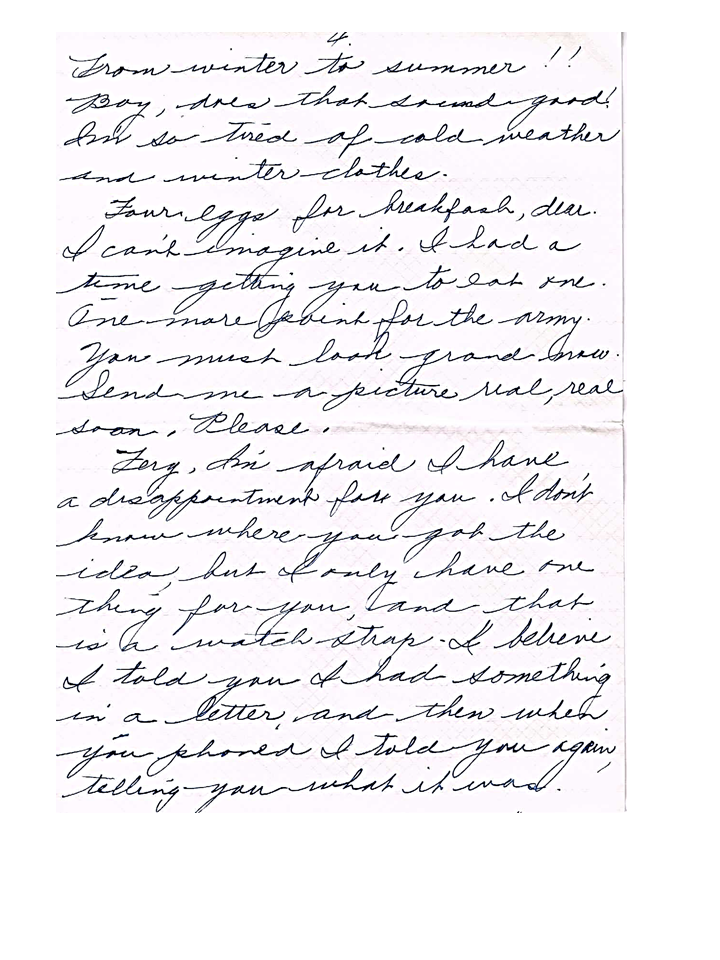 4.
From winter to summer !!
Boy, does that sound good!
I'm so tired of cold weather
and winter clothes.
Four eggs for breakfast, dear.
I can't imagine it. I had a
time getting you to eat one.
One more point for the army.
You must look grand now.
Send me a picture real, real
soon. Please.
Ferg, I'm afraid I have
a disappointment for you. I don't
know where you got the
idea, but I only have one
thing for you, and that
is a watch strap. I believe
I told you I had something
in a letter, and then when
you phoned I told you again,
telling you what it was.